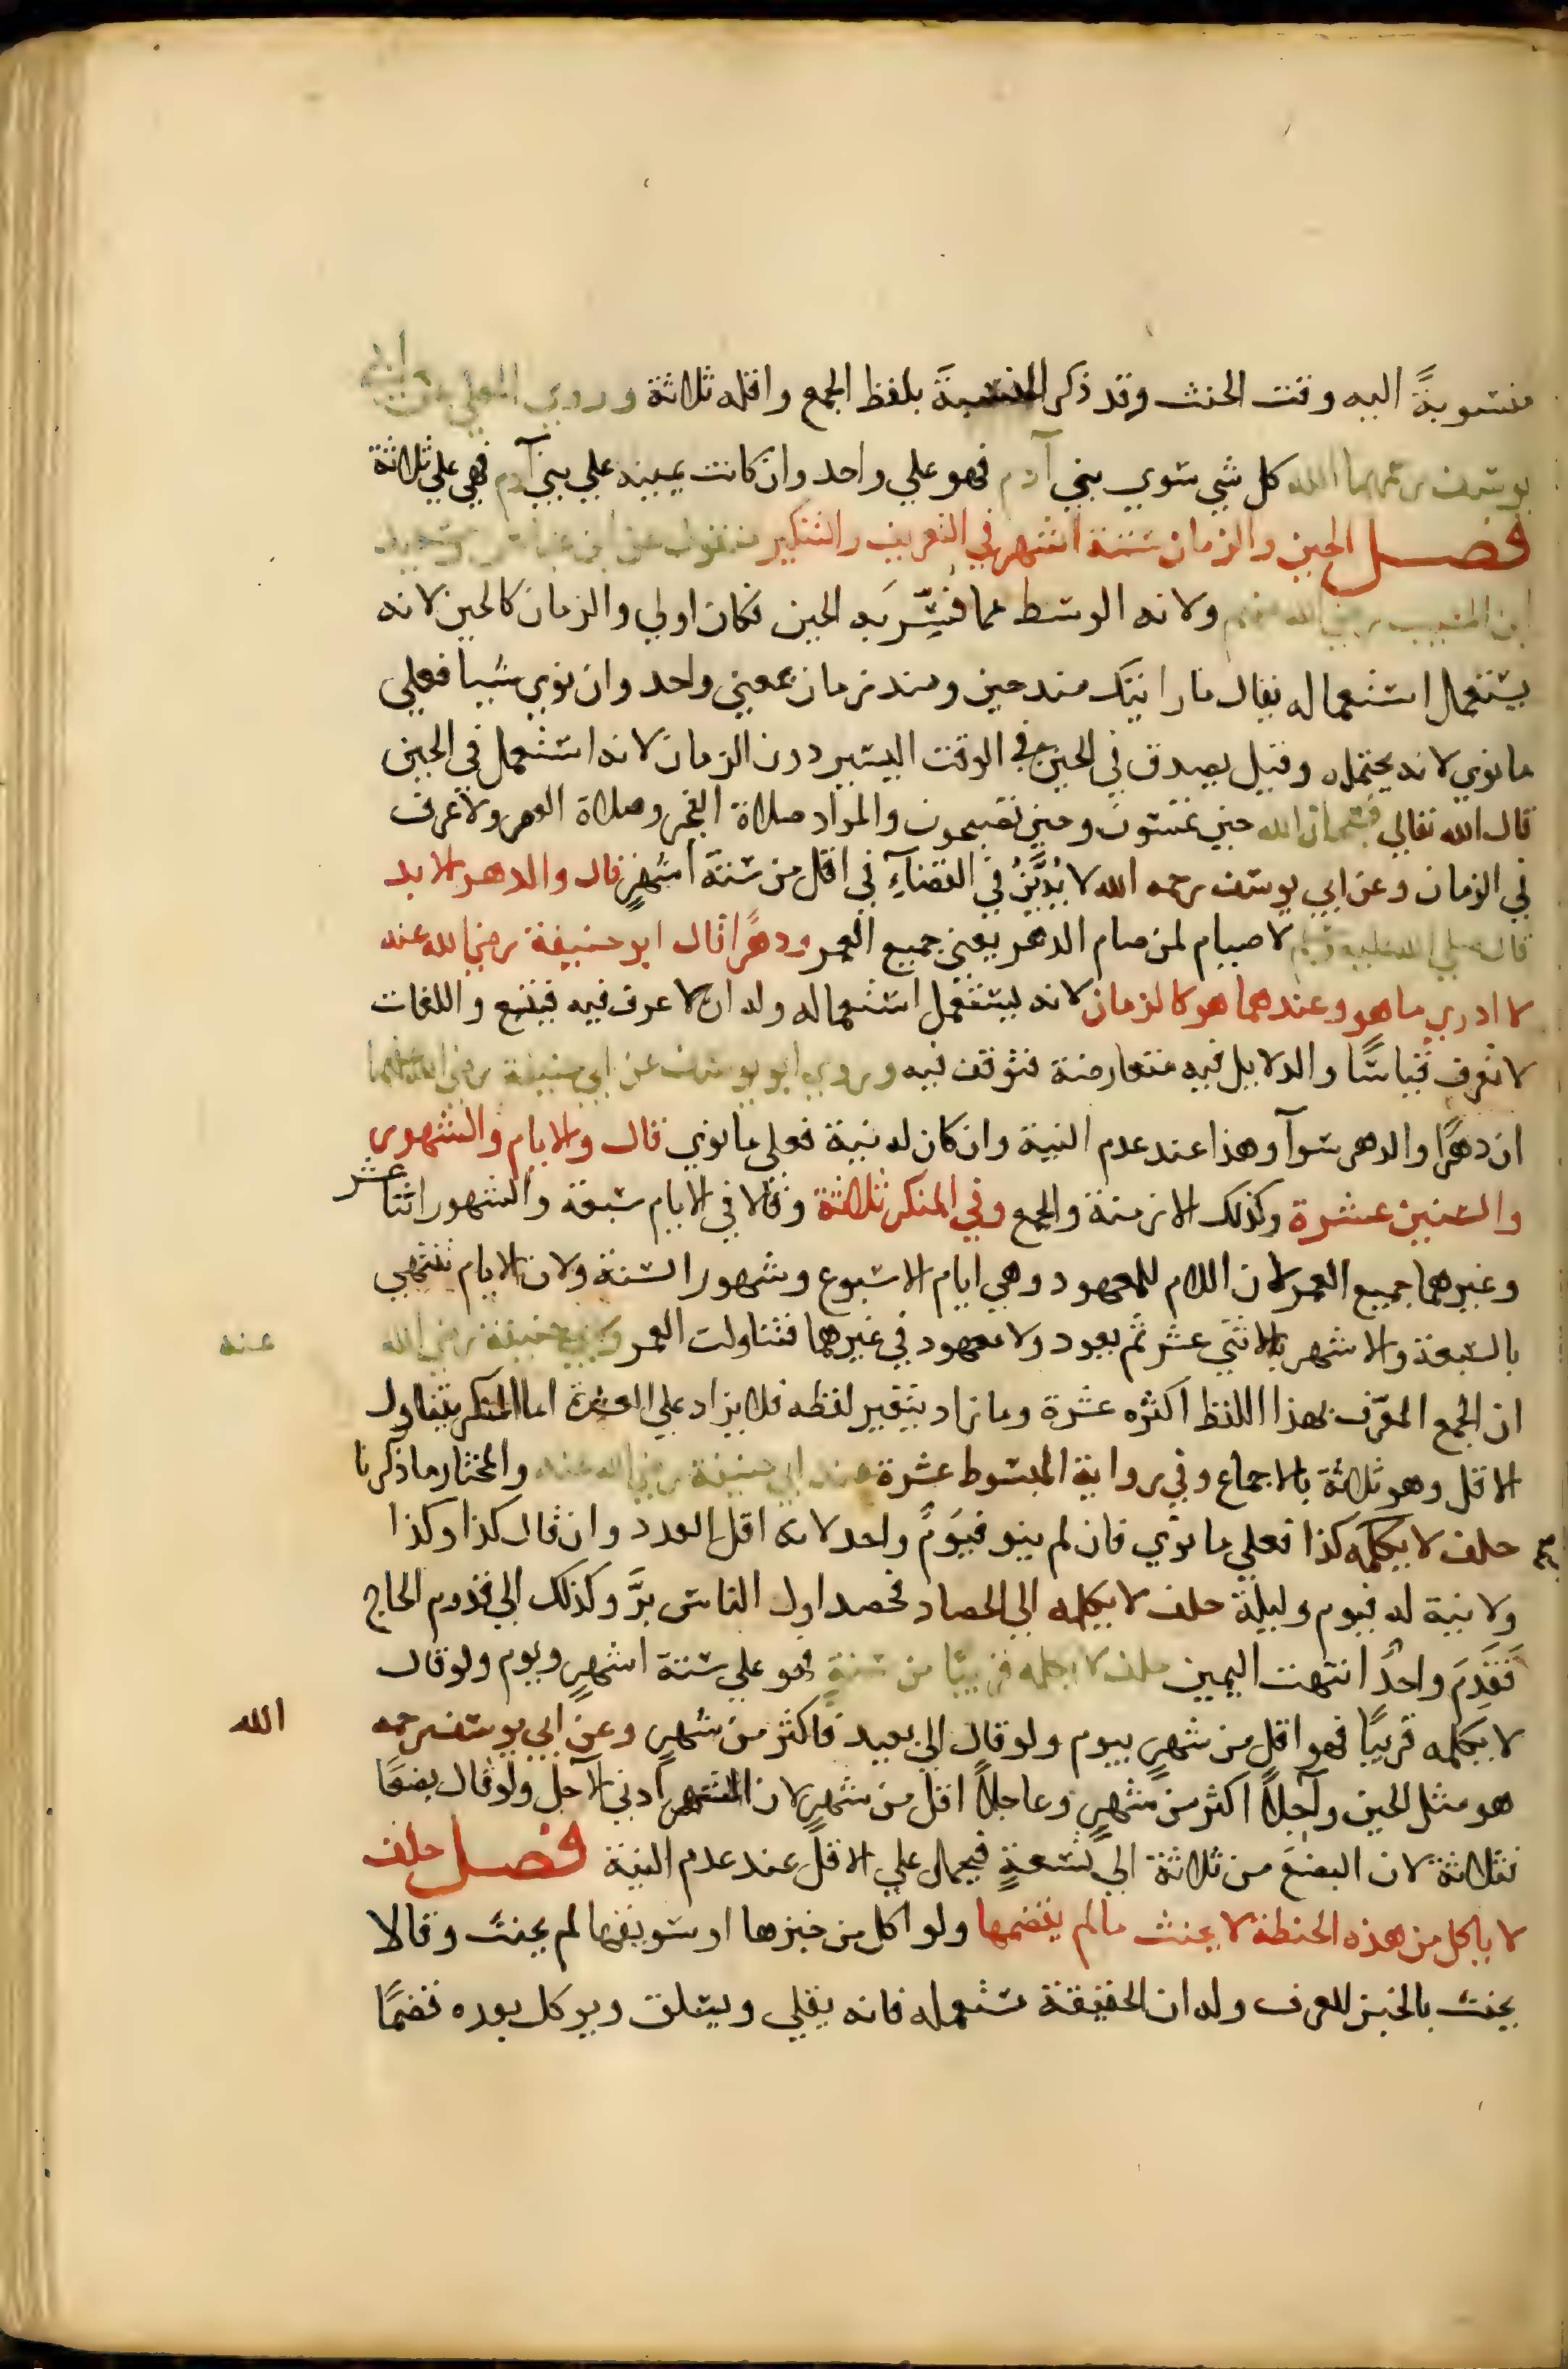 منسوبةً اليه وقت الحنث وقد ذكر النسبةَ بلفظ الجمع واقله ثلاثة وروي المعلي عن ابي
يوسف رحمهما الله كل شي سوي بني آدم فهو علي واحد وان كانت يمينه علي بني آدم فهي علي ثلاثة
فصل الحين والزمان ستة اشهر في التعريف والتنكير منقول عن ابن عباس وسعيد
ابن المسيب رضي الله عنهم ولانه الوسط مما فُسِّرَ به الحين فكان اولي والزمان كالحين لانه
يستعمل استعماله يقال ما رايتك منذ حين ومنذ زمان بمعني واحد وان نوي شيا فعلي
ما نوي لانه يحتمله وقيل يصدق في الحين في الوقت اليسير دون الزمان لانه استعمل في الحين
قال الله تعالي فسبحان الله حين تمسون وحين تصبحون والمراد صلاة الفجر وصلاة العصر ولا عرف
في الزمان وعن ابي يوسف رحمه الله لا يُدَيَّنُ في القضآءِ في اقل من ستة اشهرٍ قال والدهر الابد
قال صلي الله عليه وسلم لا صيام لمن صام الدهر يعني جميع العمر ودهرًا قال ابو حنيفة رضي الله عنه
لا ادري ما هو وعندهما هو كالزمان لانه يستعمل استعماله وله ان لا عرف فيه فيتبع واللغات
لا تعرف قياسًا والدلايل فيه متعارضة فتوقف فيه وروي ابو يوسف عن ابي حنيفة رضي الله عنهما
ان دهرًا والدهر سوآ وهذا عند عدم النية وان كان له نية فعلي ما نوي قال والايام والشهور
والسنين عشرة وكذلك الازمنة والجمع وفي المنكر ثلاثة وقالا في الايام سبعة والشهور اثنا عشر
وغيرهما جميع العمر لان اللام للمعهود وهي ايام الاسبوع وشهور السنة ولان الايام تنتهي
بالسبعة والاشهر بالاثني عشر ثم يعود ولا معهود في غيرهما فتناولت العمر ولابي حنيفة رضي الله عنه
ان الجمع المعَرَّف بهذا اللفظ اكثره عشرة وما زاد يتغير لفظه فلا يزاد علي العشرة اما المنكر يتناول
الاقل وهو ثلاثة بالاجماع وفي رواية المبسوط عشرة عند ابي حنيفة رضي الله عنه والمختار ما ذكرنا
حلف لا يكلمه كذا فعلي ما نوي فان لم ينو فيَومٌ واحد لانه اقل العدد وان قال كذا وكذا
ولا نية له فيوم وليلة حلف لا يكلمه الي الحصاد فحصد اول الناس بَرَّ وكذلك الي قدوم الحاج
فَقَدِمَ واحدٌ انتهت اليمين حلف لا يكلمه قريبًا من سنةٍ فهو علي ستة اشهرٍ ويوم ولو قال
لا يكلمه قريبًا فهو اقل من شهرٍ بيوم ولو قال الي بعيد فاكثر من شهرٍ وعن ابي يوسف رحمه الله
هو مثل الحين وآجلاً اكثر من شهرٍ وعاجلاً اقل من شهرٍ لان الشهر ادني الآجل ولو قال بضعًا
فثلاثة لان البضعَ من ثلاثة الي تسعةٍ فيحمل علي الاقل عند عدم النية فصل حلف
لا ياكل من هذه الحنطة لا يحنث مالم يقضمها ولو اكل من خبزها او سويقها لم يحنث وقالا
يحنث بالخبز للعرف وله ان الحقيقة مستعمله فانه يقلي ويسلق ويوكل بعده قضمًا